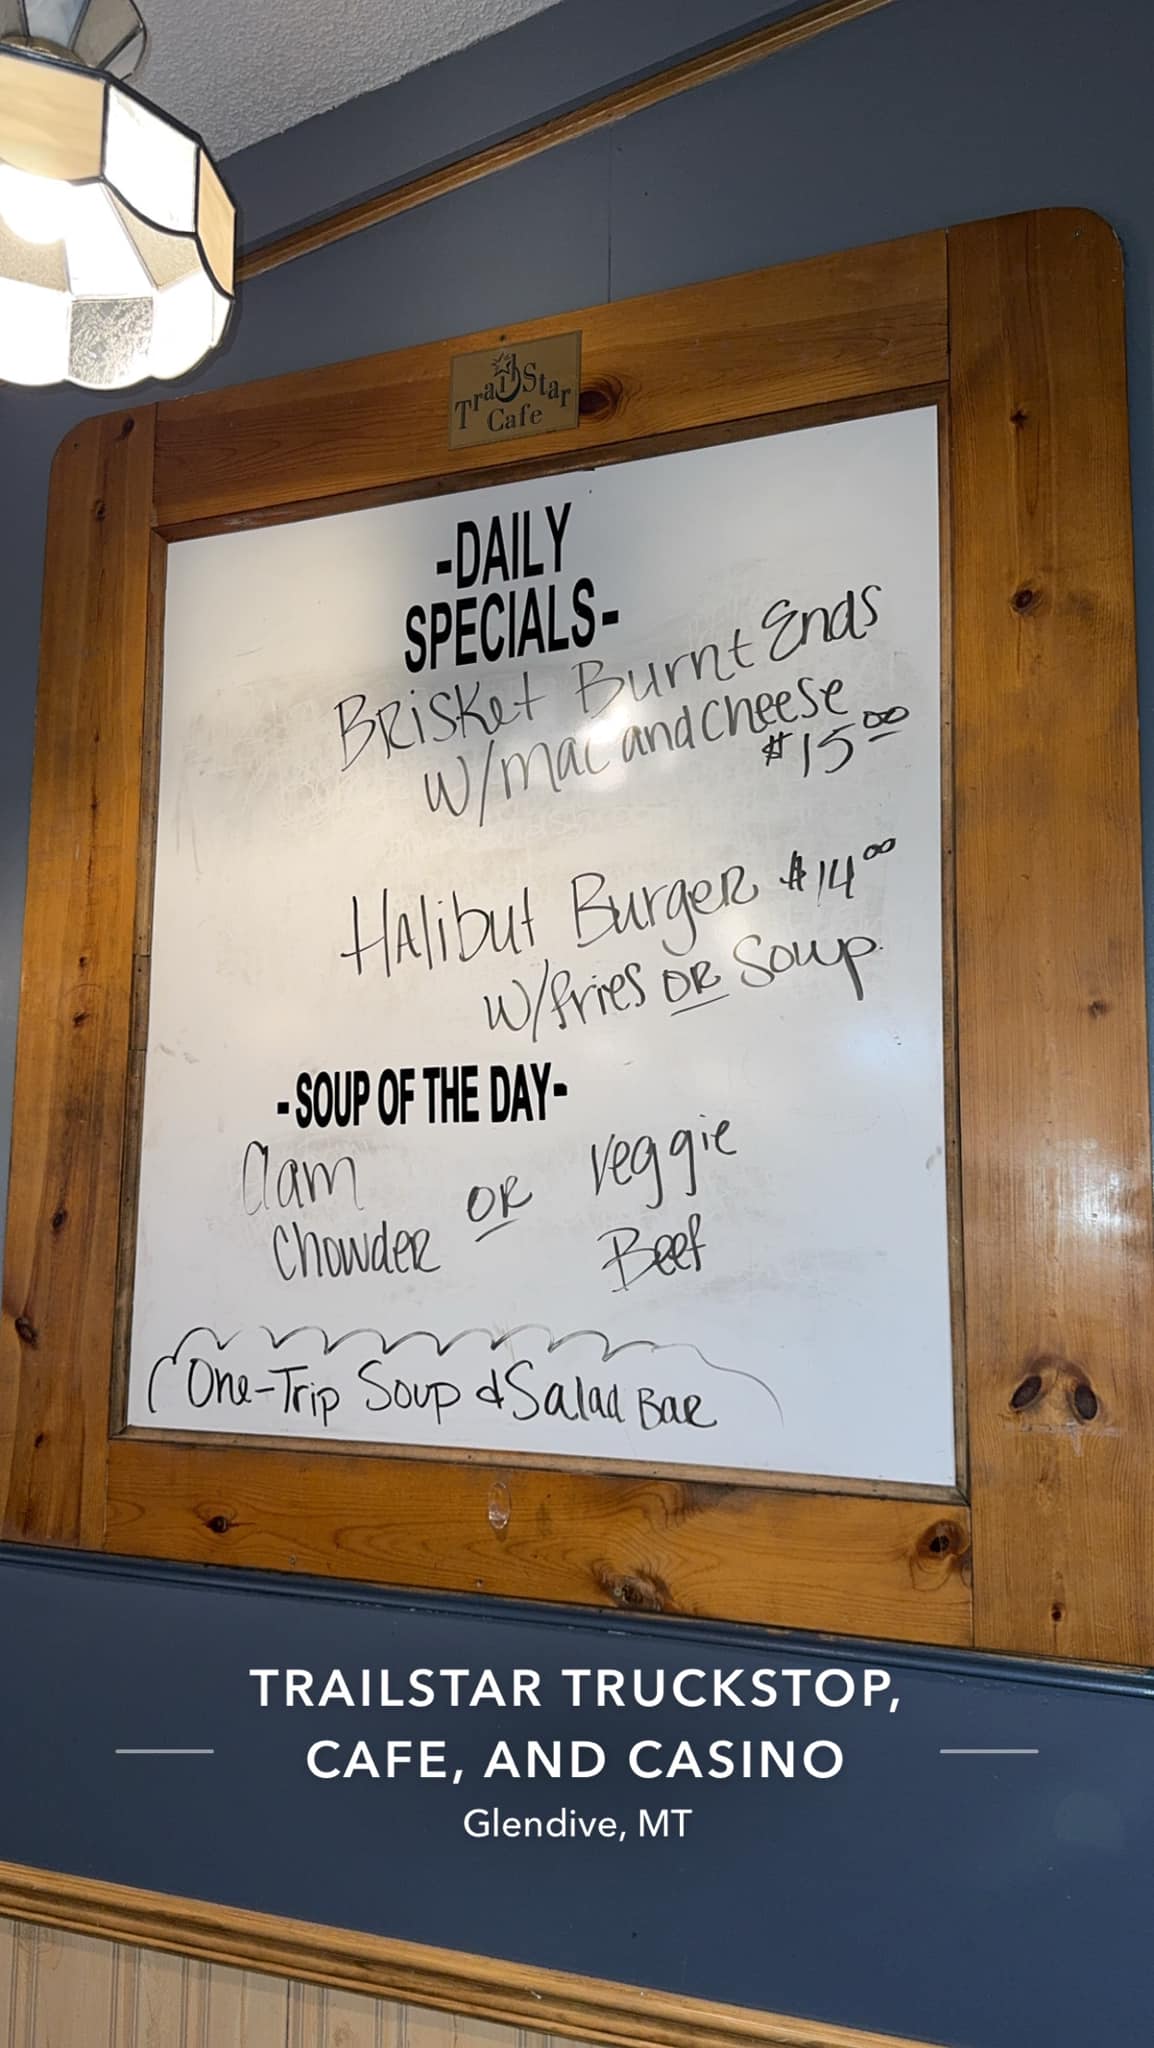 TrailStar
Cafe
-DAILY
SPECIALS-
Brisket Burnt Ends
w/mac and cheese
$15.00
Halibut Burger $14.00
w/fries OR Soup.
-SOUP OF THE DAY-
Clam OR Veggie
Chowder Beef
One-Trip Soup & Salad Bar
TRAILSTAR TRUCKSTOP,
CAFE, AND CASINO
Glendive, MT